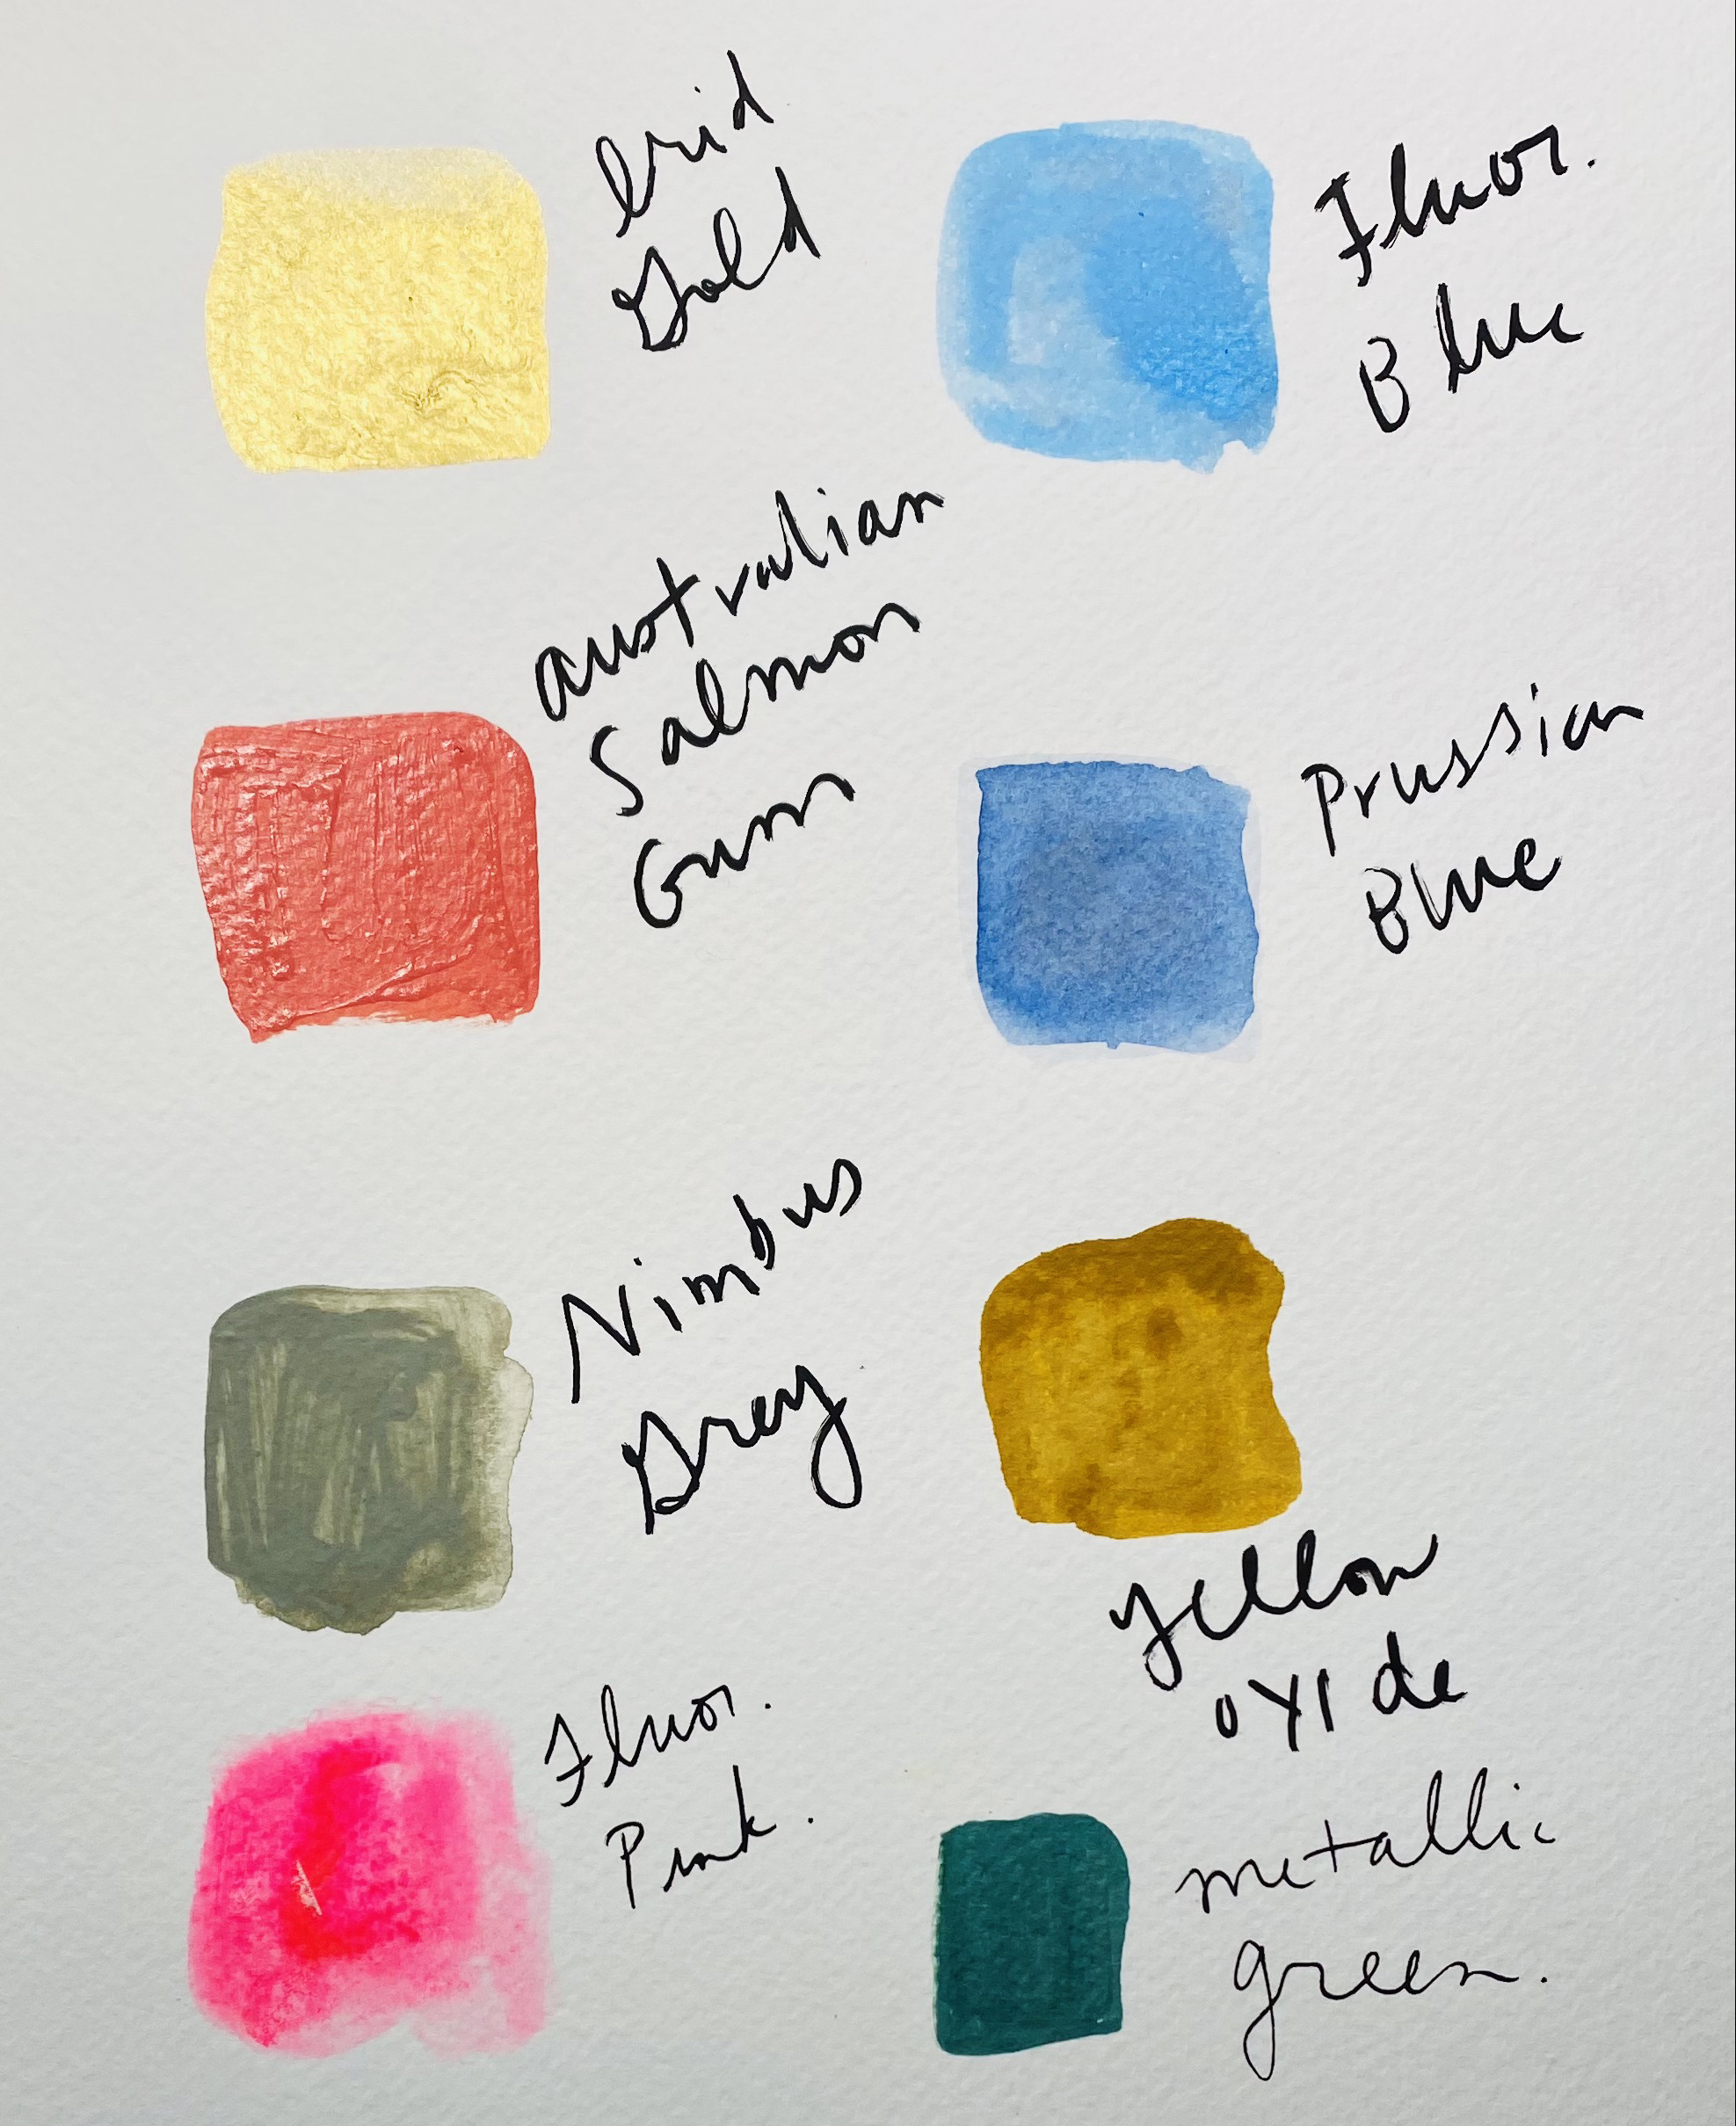 Irid
Gold
Fluor.
Blue
australian
Salmon
Gum
Prussian
Blue
Nimbus
Grey
Yellow
oxide
Fluor.
Pink.
metallic
green.